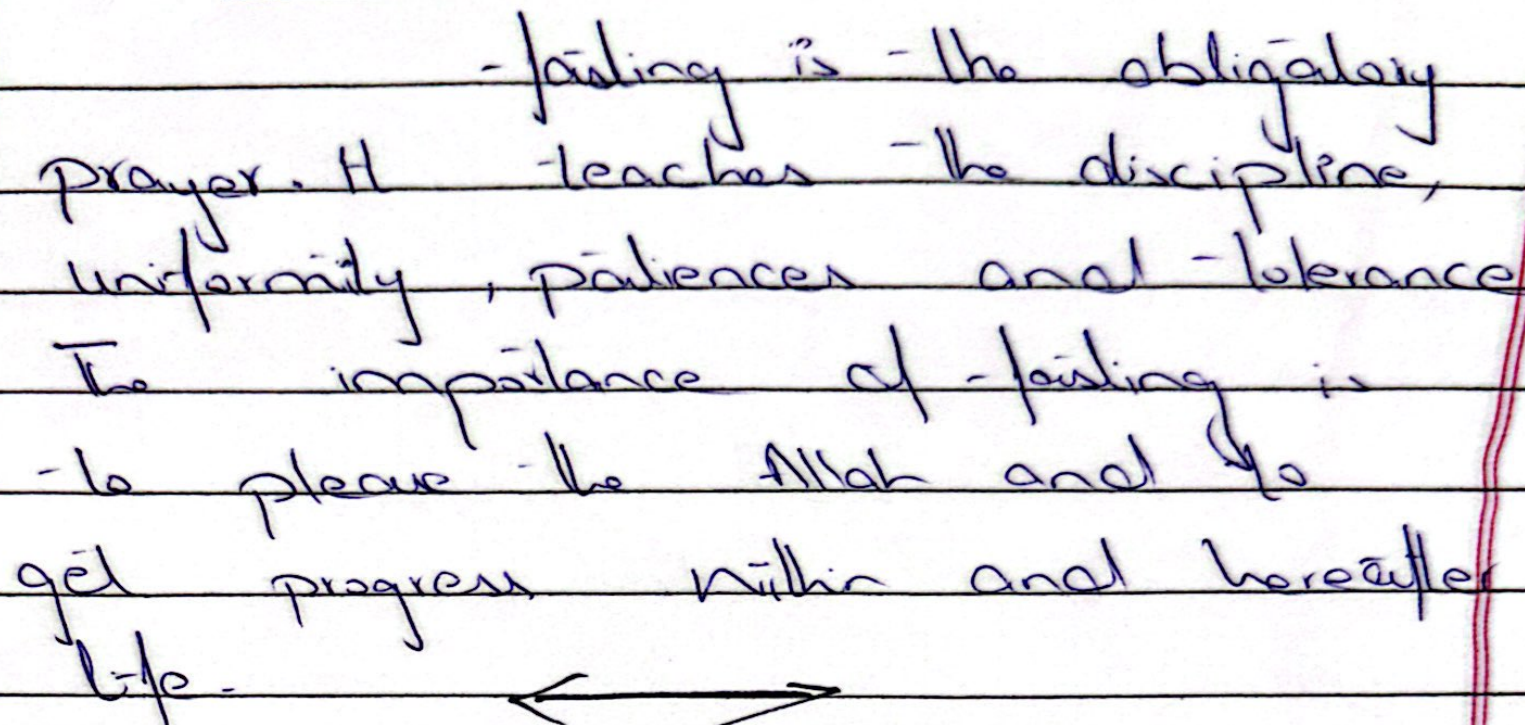 fasting is the obligatory
prayer. It teaches the discipline,
uniformity, patiences and tolerance
The importance of fasting is
to please the Allah and to
get progress within and hereafter
life.